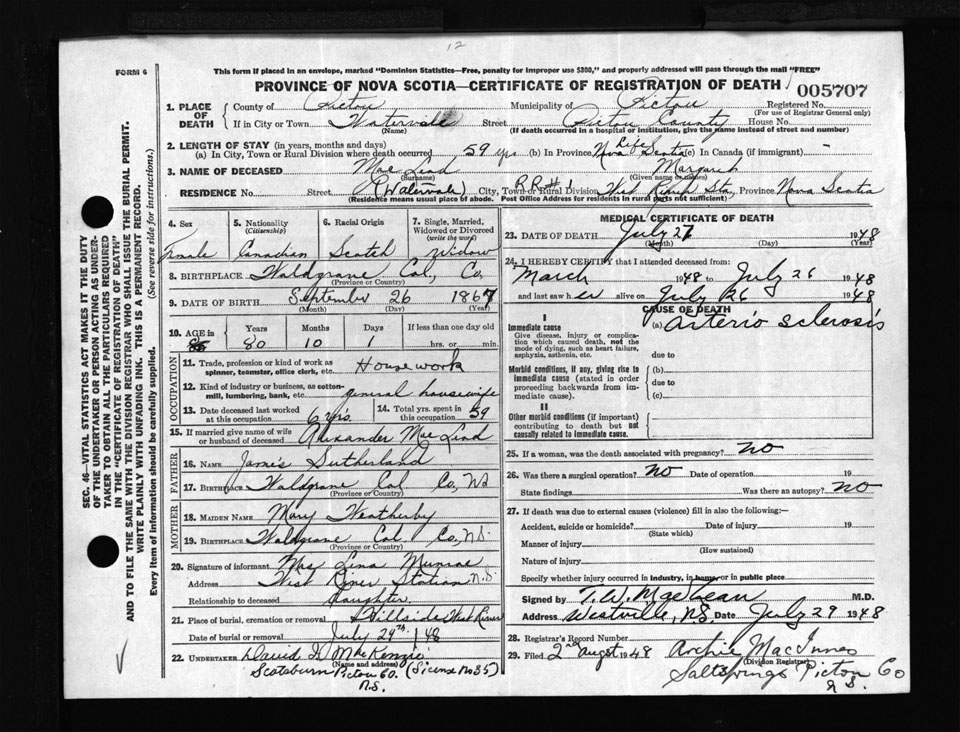 12
FORM 6
This form if placed in an envelope, marked "Dominion Statistics—Free, penalty for improper use $300," and properly addressed will pass through the mail "FREE"
PROVINCE OF NOVA SCOTIA—CERTIFICATE OF REGISTRATION OF DEATH
005707
1. PLACE OF DEATH County of Pictou Municipality of Pictou Registered No.
(For use of Registrar General only)
If in City or Town Watervale Street Pictou County House No.
(Name) (If death occurred in a hospital or institution, give the name instead of street and number)
2. LENGTH OF STAY (in years, months and days)
(a) In City, Town or Rural Division where death occurred 59 yrs (b) In Province Life Nova Scotia (c) In Canada (if immigrant) -
3. NAME OF DECEASED Mac Lead Margaret
(Surname) (Given name or names)
RESIDENCE No. Street (Watervale) City, Town or Rural Division RR#1 West River Sta, Province Nova Scotia
(Residence means usual place of abode. Post Office Address for residents in rural parts not sufficient)
4. Sex Female
5. Nationality (Citizenship) Canadian
6. Racial Origin Scotch
7. Single, Married, Widowed or Divorced (write the word) Widow
8. BIRTHPLACE Waldgrave Col, Co,
(Province or Country)
9. DATE OF BIRTH September 26 1867
(Month) (Day) (Year)
10. AGE in Years Months Days If less than one day old
80 10 1 hrs. or min.
11. Trade, profession or kind of work as spinner, teamster, office clerk, etc. Housework
12. Kind of industry or business, as cotton-mill, lumbering, bank, etc. general housewife
13. Date deceased last worked at this occupation 6 yrs.
14. Total yrs. spent in this occupation 59
15. If married give name of wife or husband of deceased Alexander Mac Lead
FATHER
16. NAME James Sutherland
17. BIRTHPLACE Waldgrave Col Co, NS
(Province or Country)
MOTHER
18. MAIDEN NAME Mary Weatherby
19. BIRTHPLACE Waldgrave Col Co, N.S.
(Province or Country)
20. Signature of informant Mrs Lena Munroe
Address West River Station N.S.
Relationship to deceased daughter
21. Place of burial, cremation or removal Hillside West River
Date of burial or removal July 29th 1948
22. UNDERTAKER David MacKenzie
(Name and address)
Scotsburn Pictou Co. (License No 35)
N.S.
OCCUPATION
MEDICAL CERTIFICATE OF DEATH
23. DATE OF DEATH July 27 1948
(Month) (Day) (Year)
24. I HEREBY CERTIFY that I attended deceased from:
March 1948 to July 26 1948
and last saw her alive on July 26 1948
CAUSE OF DEATH
I
Immediate cause (a) Arterio sclerosis
Give disease, injury or complication which caused death, not the mode of dying, such as heart failure, asphyxia, asthenia, etc.
due to
Morbid conditions, if any, giving rise to immediate cause (stated in order proceeding backwards from immediate cause).
(b)
due to
(c)
II
Other morbid conditions (if important) contributing to death but not causally related to immediate cause.
25. If a woman, was the death associated with pregnancy? NO
26. Was there a surgical operation? NO Date of operation 19
State findings Was there an autopsy? NO
27. If death was due to external causes (violence) fill in also the following:
Accident, suicide or homicide? Date of injury 19
(State which)
Manner of injury
(How sustained)
Nature of injury
Specify whether injury occurred in industry, in home or in public place
Signed by T. W. MacLean M.D.
Address Westville, N.S. Date July 29 1948
28. Registrar's Record Number
29. Filed 2nd August 1948 Archie MacInnes
(Division Registrar)
Saltsprings Pictou Co
N.S.
SEC. 46—VITAL STATISTICS ACT MAKES IT THE DUTY
OF THE UNDERTAKER OR PERSON ACTING AS UNDER-
TAKER TO OBTAIN ALL THE PARTICULARS REQUIRED
IN THE "CERTIFICATE OF REGISTRATION OF DEATH"
AND TO FILE THE SAME WITH THE DIVISION REGISTRAR WHO SHALL ISSUE THE BURIAL PERMIT.
WRITE PLAINLY WITH UNFADING INK. THIS IS A PERMANENT RECORD.
Every item of information should be carefully supplied. (See reverse side for instructions.)